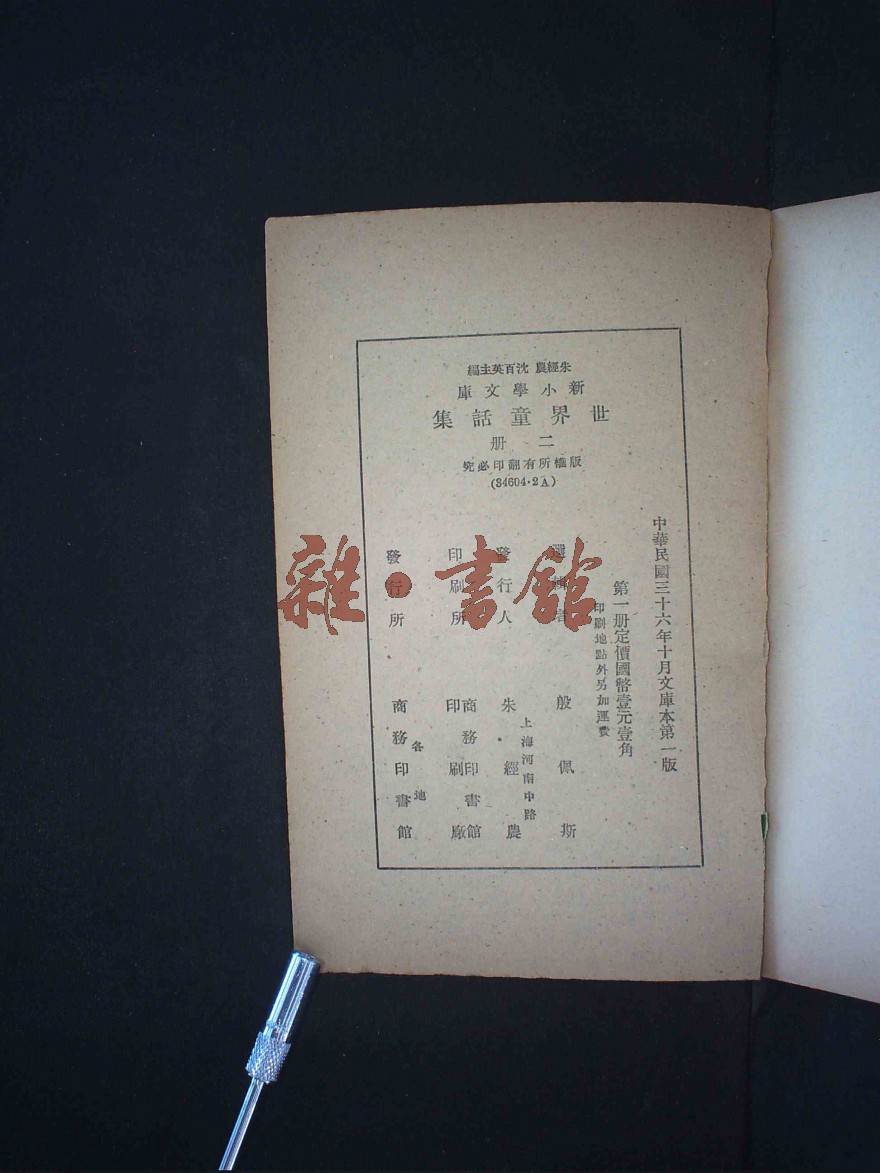 朱經農 沈百英主編
新小學文庫
世界童話集
二册
版權所有翻印必究
(34604·2A)
中華民國三十六年十月文庫本第一版
第一册定價國幣壹元壹角
印刷地點外另加運費
選輯者 殷佩斯
發行人 朱經農
上海河南中路
印刷所 商務印書館
印刷廠
發行所 各地
商務印書館
雜·書館